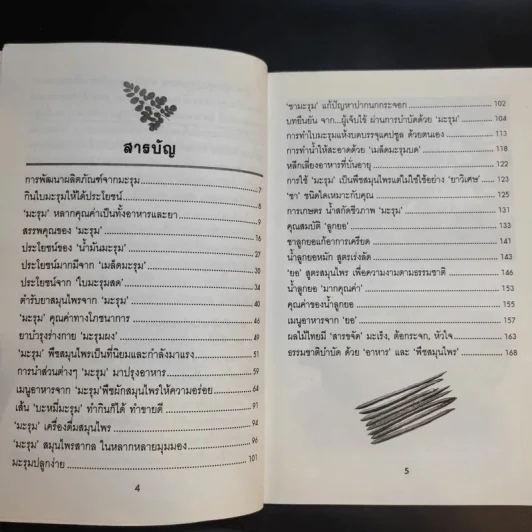 สารบัญ
การพัฒนาผลิตภัณฑ์จากมะรุม 7
กินใบมะรุมให้ได้ประโยชน์
'มะรุม' หลากคุณค่าเป็นทั้งอาหารและยา 9
สรรพคุณของ 'มะรุม' 16
ประโยชน์ของ 'น้ำมันมะรุม' 27
ประโยชน์มากมีจาก 'เมล็ดมะรุม' 30
ประโยชน์จาก 'ใบมะรุมสด' 34
ตำรับยาสมุนไพรจาก 'มะรุม' 40
'มะรุม' คุณค่าทางโภชนาการ 46
ยาบำรุงร่างกาย 'มะรุมผง' 49
'มะรุม' พืชสมุนไพรเป็นที่นิยมและกำลังมาแรง 51
การนำส่วนต่างๆ 'มะรุม' มาปรุงอาหาร 59
เมนูอาหารจาก 'มะรุม'พืชผักสมุนไพรให้ความอร่อย 64
เส้น 'บะหมี่มะรุม' ทำกินก็ได้ ทำขายดี 91
'มะรุม' เครื่องดื่มสมุนไพร 94
'มะรุม' สมุนไพรสากล ในหลากหลายมุมมอง 96
มะรุมปลูกง่าย 101
4
'ชามะรุม' แก้ปัญหาปากนกกระจอก 102
บทยืนยัน จาก...ผู้เจ็บไข้ ผ่านการบำบัดด้วย 'มะรุม' 104
การทำใบมะรุมแห้งบดบรรจุแคปซูล ด้วยตนเอง 113
การทำน้ำให้สะอาดด้วย 'เมล็ดมะรุมบด' 118
หลีกเลี่ยงอาหารที่บั่นอายุ 122
การใช้ 'มะรุม' เป็นพืชสมุนไพรแต่ไม่ใช้อย่าง 'ยาวิเศษ' 123
'ชา' ชนิดใดเหมาะกับคุณ 125
การเกษตร น้ำสกัดชีวภาพ 'มะรุม' 131
คุณสมบัติ 'ลูกยอ' 133
ชาลูกยอแก้อาการเครียด 141
น้ำลูกยอหมัก สูตรเร่งลัด 143
'ยอ' สูตรสมุนไพร เพื่อความงามตามธรรมชาติ 146
น้ำลูกยอ 'มากคุณค่า' 153
คุณค่าของน้ำลูกยอ 155
เมนูอาหารจาก 'ยอ' 157
ผลไม้ไทยมี 'สารขจัด' มะเร็ง, ต้อกระจก, หัวใจ 163
ธรรมชาติบำบัด ด้วย 'อาหาร' และ 'พืชสมุนไพร' 168
5